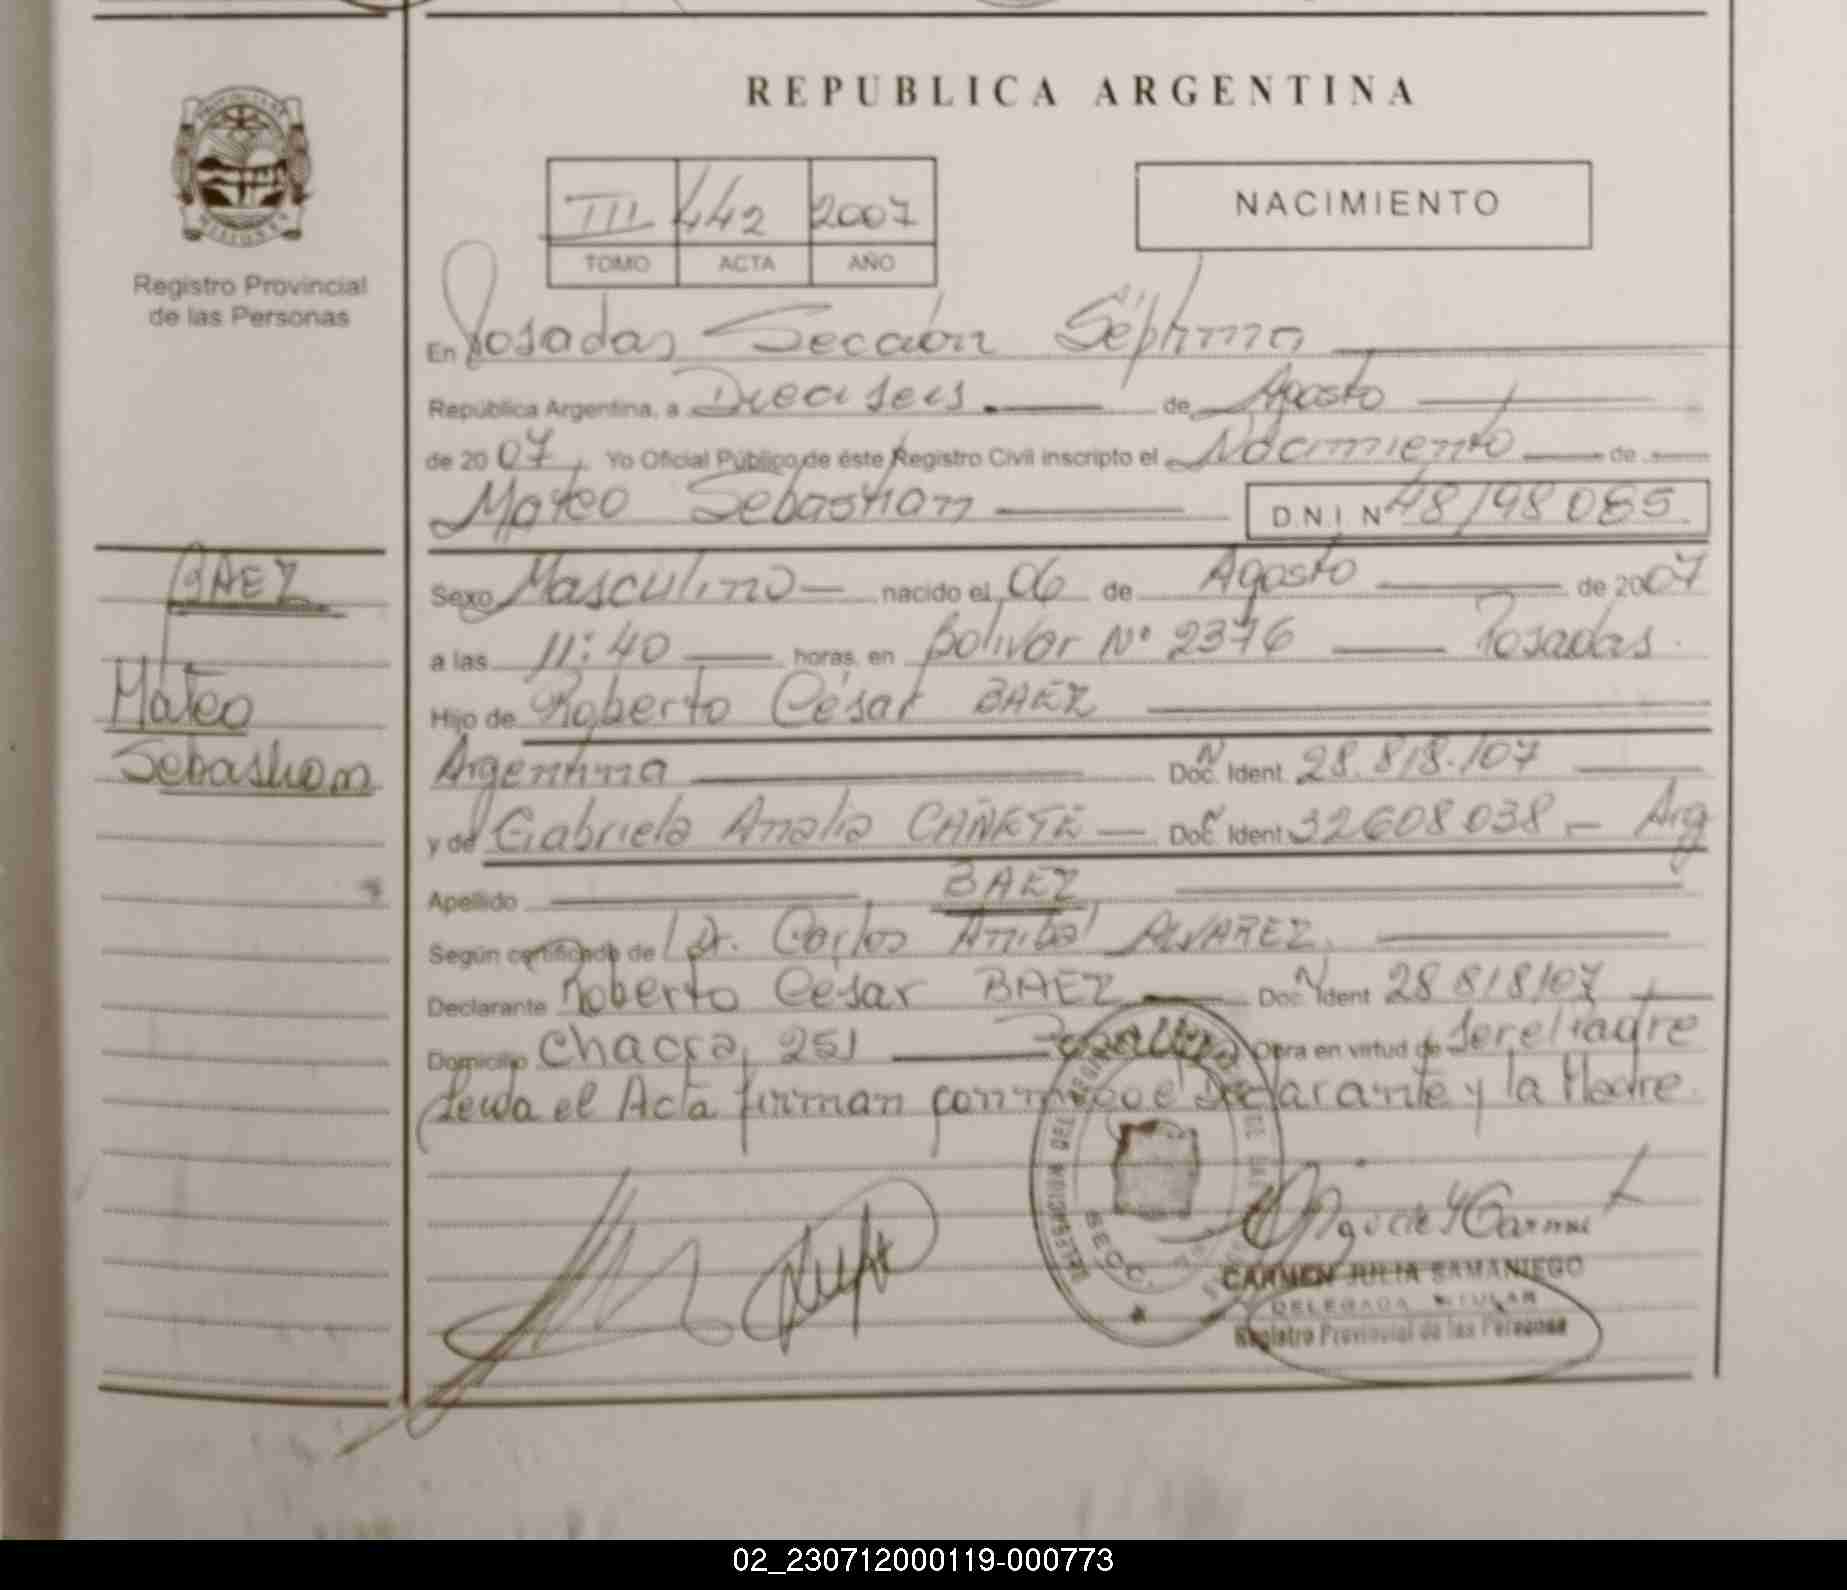 REPUBLICA ARGENTINA
III 442 2007
TOMO ACTA AÑO
NACIMIENTO
Registro Provincial
de las Personas
En Posadas Sección Séptima
República Argentina, a Dieciseis de Agosto
de 2007, Yo Oficial Público de éste Registro Civil inscripto el Nacimiento de
Mateo Sebastian D.N.I. Nº 48198085
BAEZ
Mateo
Sebastian
Sexo Masculino nacido el 06 de Agosto de 2007
a las 11:40 horas, en Bolivar Nº 2376 Posadas.
Hijo de Roberto César BAEZ
Argentina Doc. Ident. 28.818.107
y de Gabriela Analia CAÑETE Doc. Ident. 32608038 - Arg
Apellido BAEZ
Según certificado de Dr. Carlos Anibal ALVAREZ.
Declarante Roberto César BAEZ Doc. Ident. 28818107
Domicilio Chacra 251 Obra en virtud de ser el Padre
Leida el Acta firman conmigo el Declarante y la Madre.
SECC.
CARMEN JULIA SAMANIEGO
DELEGADA TITULAR
Registro Provincial de las Personas
02_230712000119-000773